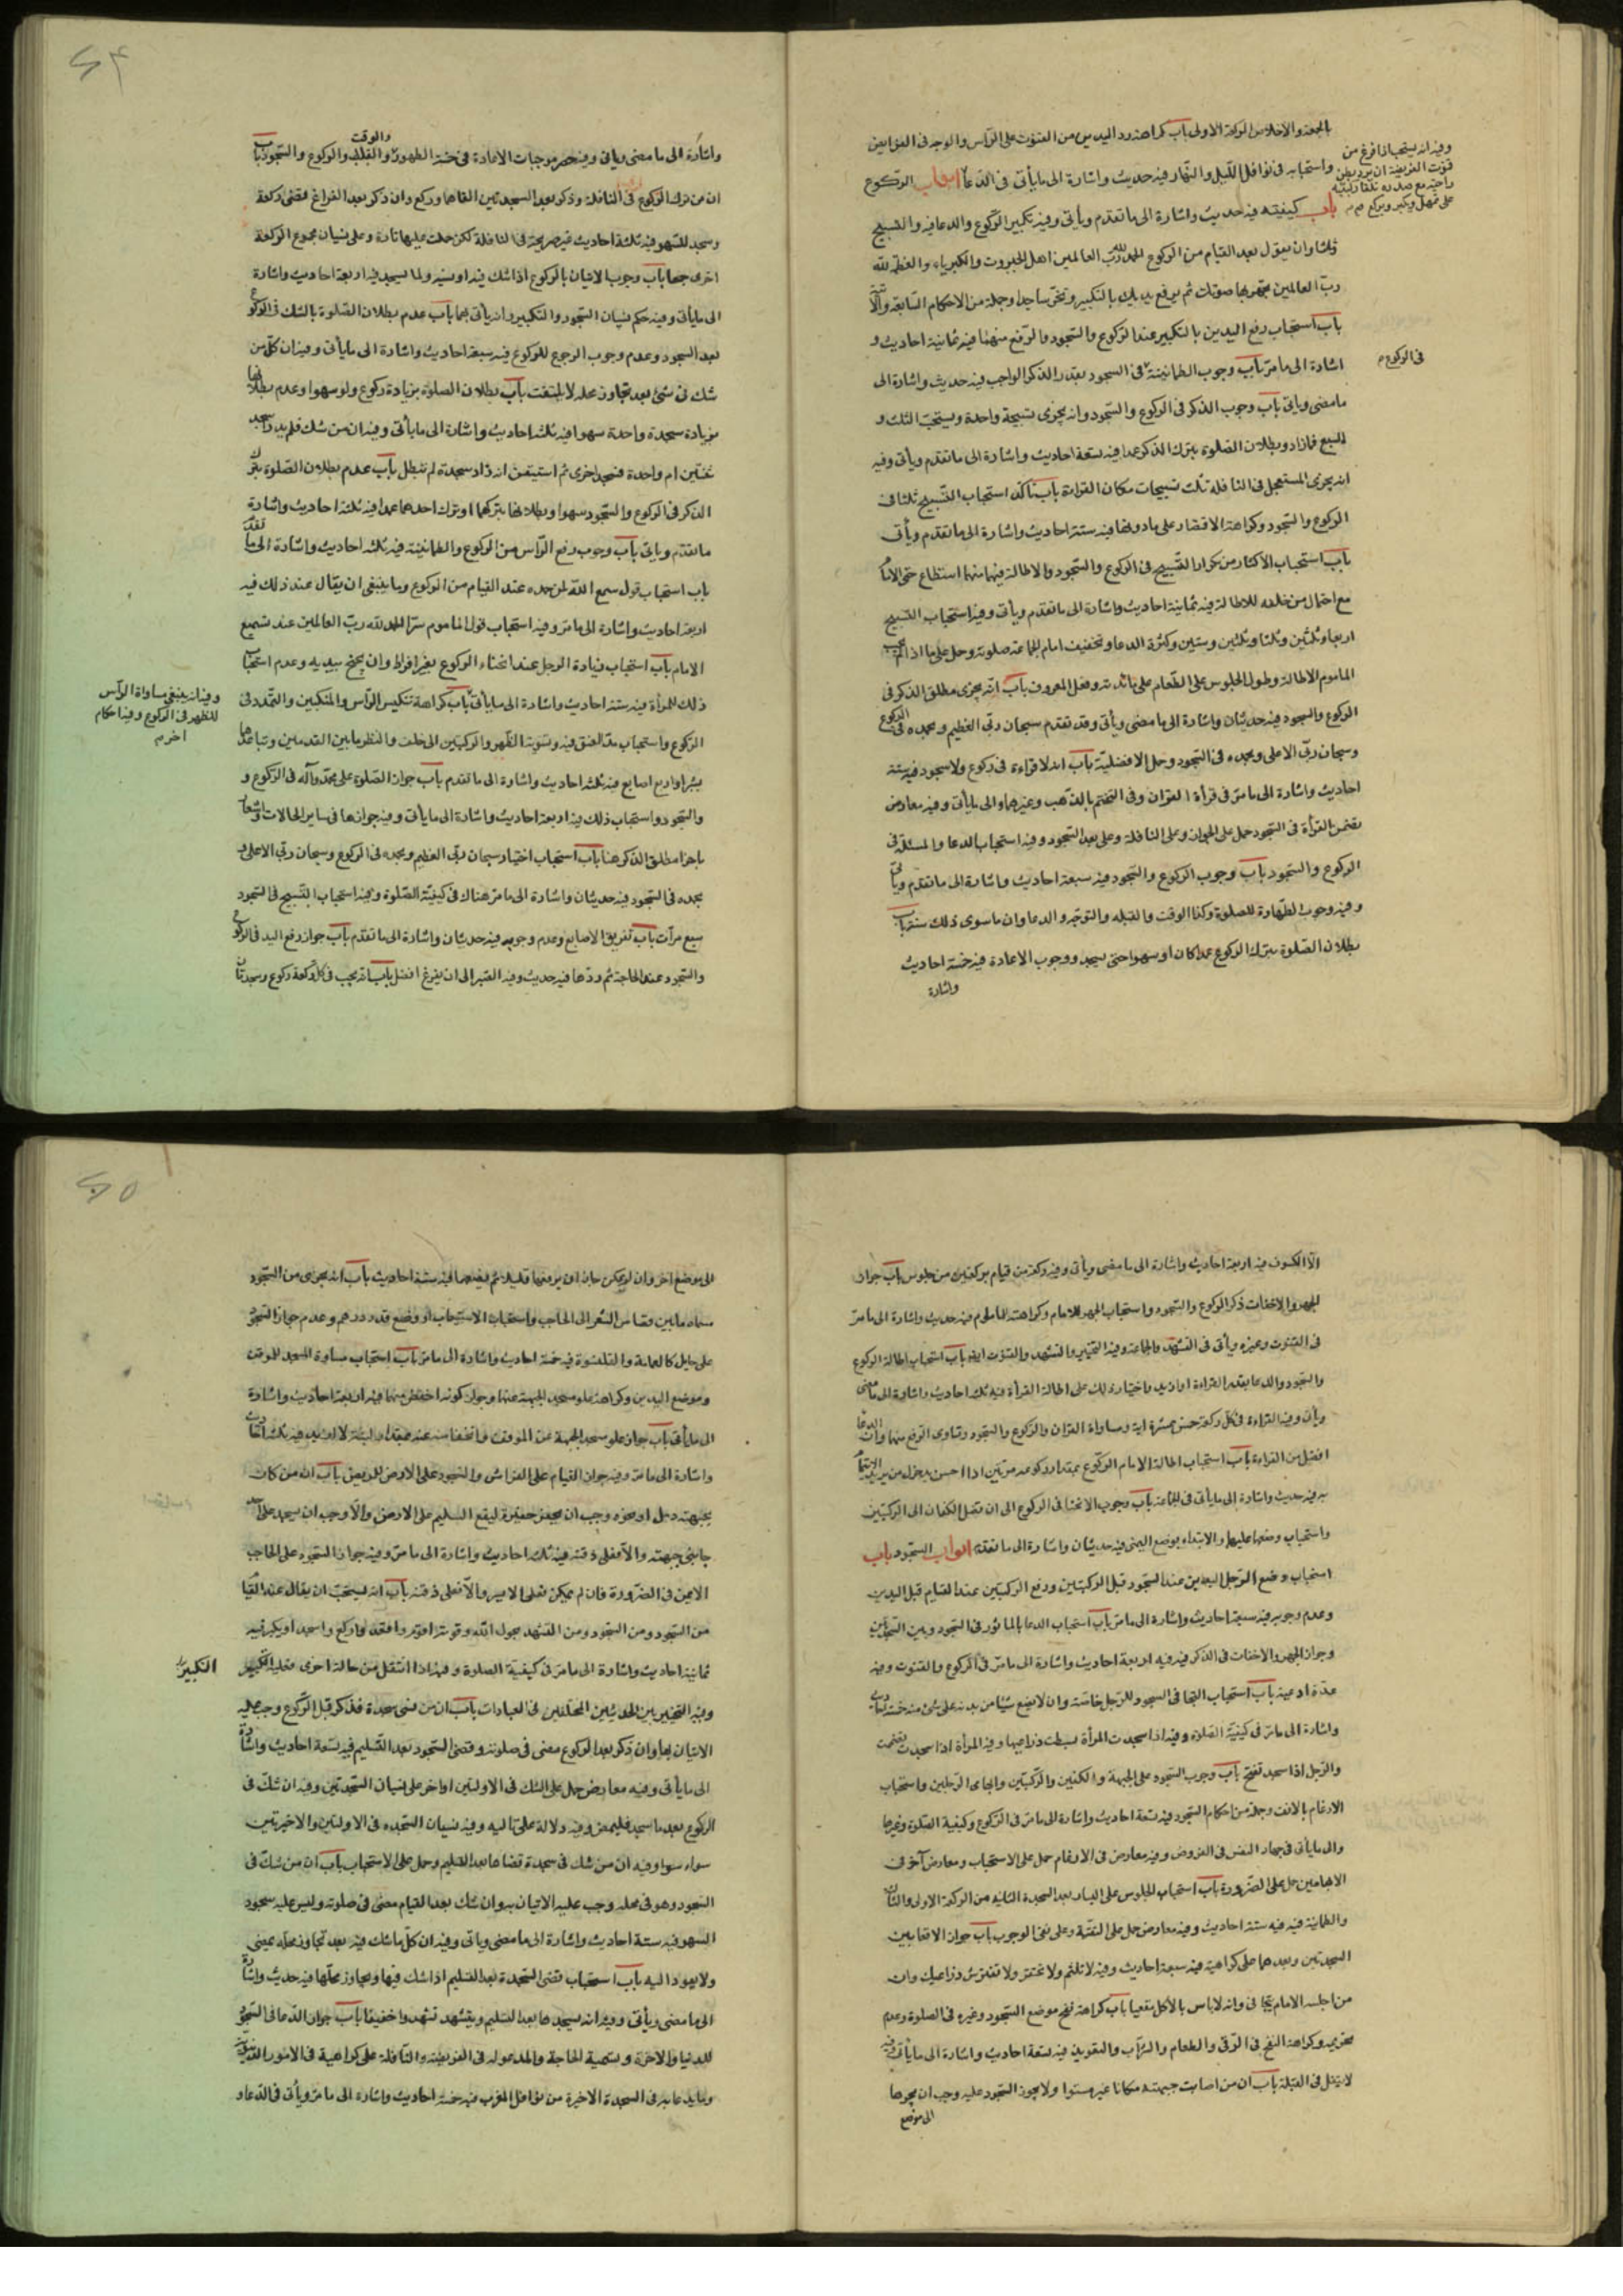 الجمعة والاخلاص الركعة الاولى باب كراهة رد اليدين من القنوت على الرأس والوجه فى الفرايض
واستحبابه فى نوافل الليل والنهار فيه حديث واشارة الى ما يأتى فى الدعاء ابواب الركوع
باب كيفيته فيه حديث واشارة الى ما تقدم ويأتى وفيه تكبير الركوع والدعا فيه والتسبيح
ثلثا وان يقول بعد القيام من الركوع الحمد لله رب العالمين اهل الجبروت والكبرياء والعظمة لله
رب العالمين تجهر بها صوتك ثم ترفع يديك بالتكبير وتخر ساجدا وجملة من الاحكام السابقة والآتية
باب استحباب رفع اليدين بالتكبير عند الركوع والسجود والرفع منهما فيه ثمانية احاديث و
اشارة الى ما مر باب وجوب الطمانينة فى السجود بقدر الذكر الواجب فيه حديث واشارة الى
ما مضى وياتى باب وجوب الذكر فى الركوع والسجود وانه يجزى تسبيحة واحدة ويستحب الثلث و
السبع فمازاد وبطلان الصلوة بترك الذكر عمدا فيه سبعة احاديث واشارة الى ما تقدم ويأتى وفيه
انه يجزى المستعجل فى النافلة ثلث تسبيحات مكان القراءة باب تأكد استحباب التسبيح ثلثا فى
الركوع والسجود وكراهة الاقتصار على مادونها فيه ستة احاديث واشارة الى ما تقدم ويأتى
باب استحباب الاكثار من تكرار التسبيح فى الركوع والسجود والاطالة فيهما مهما استطاع حتى الامام
مع احتمال من خلفه للاطالة فيه ثمانية احاديث واشارة الى ما تقدم ويأتى وفيه استحباب التسبيح
اربعا وثلثين وثلثا وثلثين وستين وكثرة الدعا وتخفيف امام الجماعة صلوته وحمل على ما اذا لم يحب
الماموم الاطالة وطول الجلوس على الطعام على مائدته وفعل المعروف باب انه يجزى مطلق الذكر فى
الركوع والسجود فيه حديثان واشارة الى ما مضى ويأتى وقد تقدم سبحان ربى العظيم وبحمده فى الركوع
وسبحان ربى الاعلى وبحمده فى السجود وحمل الافضلية باب انه لا قراءة فى ركوع ولا سجود فيه ستة
احاديث واشارة الى ما مر فى قرأة القران وفى التختم بالذهب وغيرهما والى ما يأتى وفيه معارض
يتضمن القرأة فى السجود حمل على الجواز وعلى النافلة وعلى بعد السجود وفيه استحباب الدعا والمسئلة فى
الركوع والسجود باب وجوب الركوع والسجود فيه سبعة احاديث واشارة الى ما تقدم ويأتى
وفيه وجوب الطهارة للصلوة وكذا الوقت والقبله والتوجه والدعا وان ماسوى ذلك سنة باب
بطلان الصلوة بترك الركوع عمدا كان او سهوا حتى يسجد ووجوب الاعادة فيه خمسة احاديث
واشارة
وفيه انه يستحب اذا فرغ من
قنوت الفريضة ان يرد بطن
راحتيه مع صدره تلقاء ركبتيه
على تمهل ويكبر ويركع م م
فى الركوع م
٤٢
واشارة الى ما مضى وياتى وفيه حصر موجبات الاعادة فى خمسة الطهور والوقت والقبلة والركوع والسجود باب
ان من ترك الركوع فى النافلة وذكر بعد السجدتين القاهما وركع وان ذكر بعد الفراغ قضى ركعة
وسجد للسهو فيه ثلثة احاديث غير صريحة فى النافلة لكن حملت عليها تارة وعلى نسيان مجموع الركعة
اخرى جمعا باب وجوب الاتيان بالركوع اذا شك فيه او نسيه ولما يسجد فيه اربعة احاديث واشارة
الى ما يأتى وفيه حكم نسيان السجود والتكبير وانه يأتى بهما باب عدم بطلان الصلوة بالشك فى الركوع
بعد السجود وعدم وجوب الرجوع للركوع فيه سبعة احاديث واشارة الى ما يأتى وفيه ان كل من
شك فى شئ بعد تجاوز محله لا يلتفت باب بطلان الصلوة بزيادة ركوع ولو سهوا وعدم بطلانها
بزيادة سجدة واحدة سهوا فيه ثلثة احاديث واشارة الى ما يأتى وفيه ان من شك فلم يدر اسجد
ثنتين ام واحدة فسجد اخرى ثم استيقن انه زاد سجدة لم تبطل باب عدم بطلان الصلوة بترك
الذكر فى الركوع والسجود سهوا وبطلانها بتركهما او ترك احدهما عمدا فيه ثلثة احاديث واشارة
ما تقدم وياتى باب وجوب رفع الرأس من الركوع والطمانينة فيه ثلثة احاديث واشارة الى ما تقدم
باب استحباب قول سمع الله لمن حمده عند القيام من الركوع وما ينبغى ان يقال عند ذلك فيه
اربعة احاديث واشارة الى ما مر وفيه استحباب قول الماموم سرا الحمد لله رب العالمين عند تسميع
الامام باب استحباب زيادة الرجل عند انحناء الركوع بغير افراط وان يجنح بيديه وعدم استحباب
ذلك للمرأة فيه ستة احاديث واشارة الى ما يأتى باب كراهة تنكيس الرأس والمنكبين والتمدد فى
الركوع واستحباب مد العنق فيه وتسوية الظهر والركبتين الى خلف والنظر ما بين القدمين وتباعدهما
بشبر او اربع اصابع فيه ثلثة احاديث واشارة الى ما تقدم باب جواز الصلوة على محمد وآله فى الركوع و
والسجود واستحباب ذلك فيه اربعة احاديث واشارة الى ما يأتى وفيه جوازها فى ساير الحالات
باجزا مطلق الذكر هنا باب استحباب اختيار سبحان ربى العظيم وبحمده فى الركوع وسبحان ربى الاعلى و
بحمده فى السجود فيه حديثان واشارة الى ما مر هناك فى كيفية الصلوة وفيه استحباب التسبيح فى السجود
سبع مرات باب تفريق الاصابع وعدم وجوبه فيه حديثان واشارة الى ما تقدم باب جواز رفع اليد فى الركوع
والسجود عند الحاجة ثم ردها فيه حديث وفيه الصبر الى ان يفرغ افضل باب انه يجب فى كل ركعة ركوع وسجدتان
وفيه انه ينبغى مساواة الرأس
للظهر فى الركوع وفيه احكام
اخر م
الا الكسوف فيه اربعة احاديث واشارة الى ما مضى ويأتى وفيه ركعة من قيام بركعتين من جلوس باب جواز
الجهر والاخفات ذكر الركوع والسجود واستحباب الجهر للامام وكراهته للماموم فيه حديث واشارة الى ما مر
فى القنوت وغيره ويأتى فى التشهد والجماعة وفيه التخيير والتشهد والقنوت ايضا باب استحباب اطالة الركوع
والسجود والدعا بقدر القراءة او ازيد واختيار ذلك على اطالة القرأة فيه ثلثة احاديث واشارة الى ما مضى
ويأتى وفيه القراءة فى كل ركعة خمس عشرة اية ومساواة القران والركوع والسجود وتساوى الرفع منهما وان الدعا
افضل من القراءة باب استحباب اطالة الامام الركوع بمقدار ركوعه مرتين اذا احس بدخول من يريد الايتمام
به فيه حديث واشارة الى ما يأتى فى الجماعة باب وجوب الانحناء فى الركوع الى ان تصل الكفان الى الركبتين
واستحباب وضعها عليهما والابتداء بوضع اليمنى فيه حديثان واشارة الى ما تقدم ابواب السجود باب
استحباب وضع الرجل اليدين عند السجود قبل الركبتين ورفع الركبتين عند القيام قبل اليدين
وعدم وجوبه فيه سبعة احاديث واشارة الى ما مر باب استحباب الدعا بالماثور فى السجود وبين السجدتين
وجواز الجهر والاخفات فى الذكر فيه فيه اربعة احاديث واشارة الى ما مر فى الركوع والقنوت وفيه
عدة ادعية باب استحباب التجافى السجود للرجل خاصة وان لا يضع شيئا من بدنه على شئ منه فيه خمسة احاديث
واشارة الى ما مر فى كيفية الصلوة وفيه اذا سجدت المرأة بسطت ذراعيها وفيه المرأة اذا سجدت تضممت
والرجل اذا سجد تفتح باب وجوب السجود على الجبهة والكفين والركبتين وابهامى الرجلين واستحباب
الارغام بالانف وجملة من احكام السجود فيه تسعة احاديث واشارة الى ما مر فى الركوع وكيفية الصلوة وغيرها
والى ما يأتى فى جهاد النفس فى الفروض وفيه معارض فى الارغام حمل على الاستحباب ومعارض آخر فى
الابهامين حمل على الضرورة باب استحباب الجلوس على اليسار بعد السجدة الثانية من الركعة الاولى والثالثة
والطمانينة فيه فيه ستة احاديث وفيه معارض حمل على التقية وعلى نفى الوجوب باب جواز الاقعا بين
السجدتين وبعدهما على كراهية فيه سبعة احاديث وفيه لا تلثم ولا تحتفز ولا تفترش ذراعيك وان
من اجلسه الامام يتجافى وانه لا باس بالاكل مقعيا باب كراهة نفخ موضع السجود وغيره فى الصلوة وعدم
تحريمه وكراهة النفخ فى الرقى والطعام والشراب والتعويذ فيه تسعة احاديث واشارة الى ما يأتى وفيه
لا يتفل فى القبلة باب ان من اصابت جبهته مكانا غير مستو اولا يجوز السجود عليه وجب ان يجرها
الى موضع
٤٥
الى موضع اخر وان لم يمكن جاز ان يرفعها قليلا ثم يضعها فيه ستة احاديث باب انه يجزى من السجود
مسماه ما بين قصاص الشعر الى الحاجب واستحباب الاستيعاب او وضع قدر درهم وعدم جواز السجود
على حايل كالعمامة والقلنسوة فيه خمسة احاديث واشارة الى ما مر باب استحباب مساواة المسجد للموقف
وموضع اليدين وكراهة علو مسجد الجبهة عنها وجواز كونه اخفض منها فيه اربعة احاديث واشارة
الى ما يأتى باب جواز علو مسجد الجبهة عن الموقف وانخفاضه عنه بمقدار لبنة لا ازيد فيه ثلثة احاديث
واشارة الى ما مر وفيه جواز القيام على الفراش والسجود على الارض للمريض باب ان من كان
بجبهته دمل او نحوه وجب ان يحفر حفيرة ليقع السليم على الارض والا وجب ان يسجد على احد
جانبى جبهته والا فعلى ذقنه فيه ثلثة احاديث واشارة الى ما مر وفيه جواز السجود على الحاجب
الايمن فى الضرورة فان لم يمكن فعلى الايسر والا فعلى ذقنه باب انه يستحب ان يقال عند القيام
من السجود ومن السجود ومن التشهد بحول الله وقوته اقوم واقعد واركع واسجد او يكبر فيه
ثمانية احاديث واشارة الى ما مر فى كيفية الصلوة وفيه اذا انتقل من حالة اخرى فعليه التكبير
وفيه التخيير بين الحديثين المختلفين فى العبادات باب ان من نسى سجدة فذكر قبل الركوع وجب عليه
الاتيان بها وان ذكر بعد الركوع مضى فى صلوته وقضى السجود بعد التسليم فيه تسعة احاديث واشارة
الى ما يأتى وفيه معارض حمل على الشك فى الاوليين اواخر على نسيان السجدتين وفيه ان شك فى
الركوع بعد ما سجد فليمض وفيه دلالة على ما ليه وفيه نسيان السجده فى الاوليتين والاخيرتين
سواء سوا وفيه ان من شك فى سجدة قضاها بعد التسليم وحمل على الاستحباب باب ان من شك فى
السجود وهو فى محله وجب عليه الاتيان به وان شك بعد القيام مضى فى صلوته وليس عليه سجود
السهو فيه ستة احاديث واشارة الى ما مضى وياتى وفيه ان كل ما شك فيه بعد تجاوز محله يمضى
ولا يعود اليه باب استحباب قضى السجدة بعد التسليم اذا شك فيها وتجاوز محلها فيه حديث واشارة
الى ما مضى ويأتى وفيه انه يسجدها بعد التسليم ويتشهد تشهدا خفيفا باب جواز الدعا فى السجود
للدنيا والاخرة وتسمية الحاجة والمدعو له فى الفريضة والنافلة على كراهية فى الامور الدنيوية
وما يدعا به فى السجدة الاخيرة من نوافل المغرب فيه خمسة احاديث واشارة الى ما مر ويأتى فى الدعاء و
التكبير